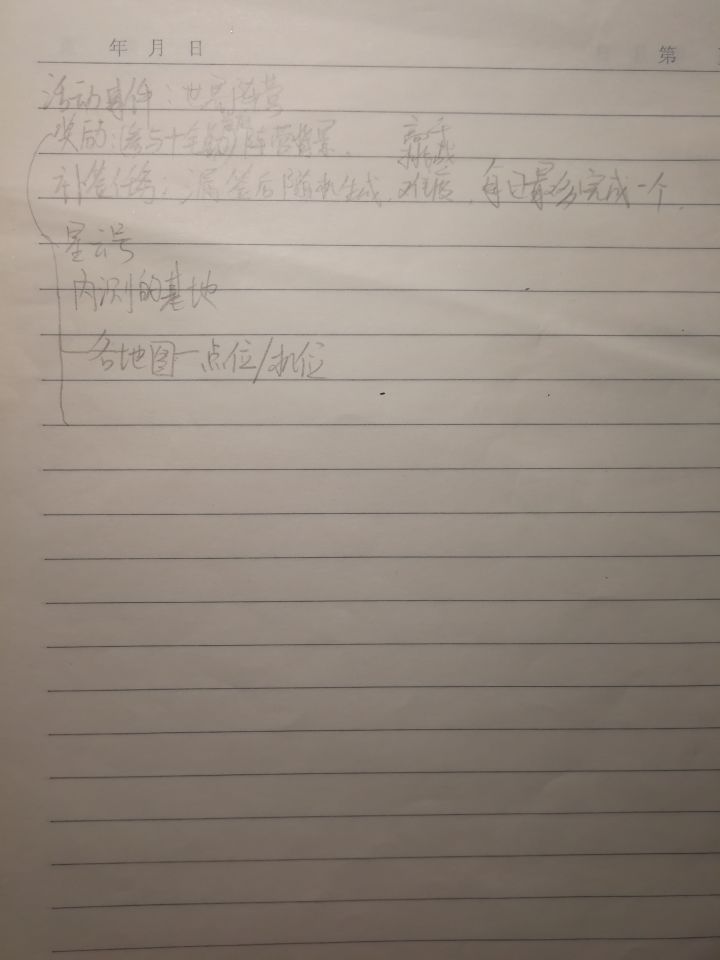 年 月 日
第
活动事件：世界阵营
奖励：参与十年 阵营背景，
补签任务：漏签后随机生成，高于 难度，每日最多完成一个
星云号
内测的基地
各地图一点位/机位